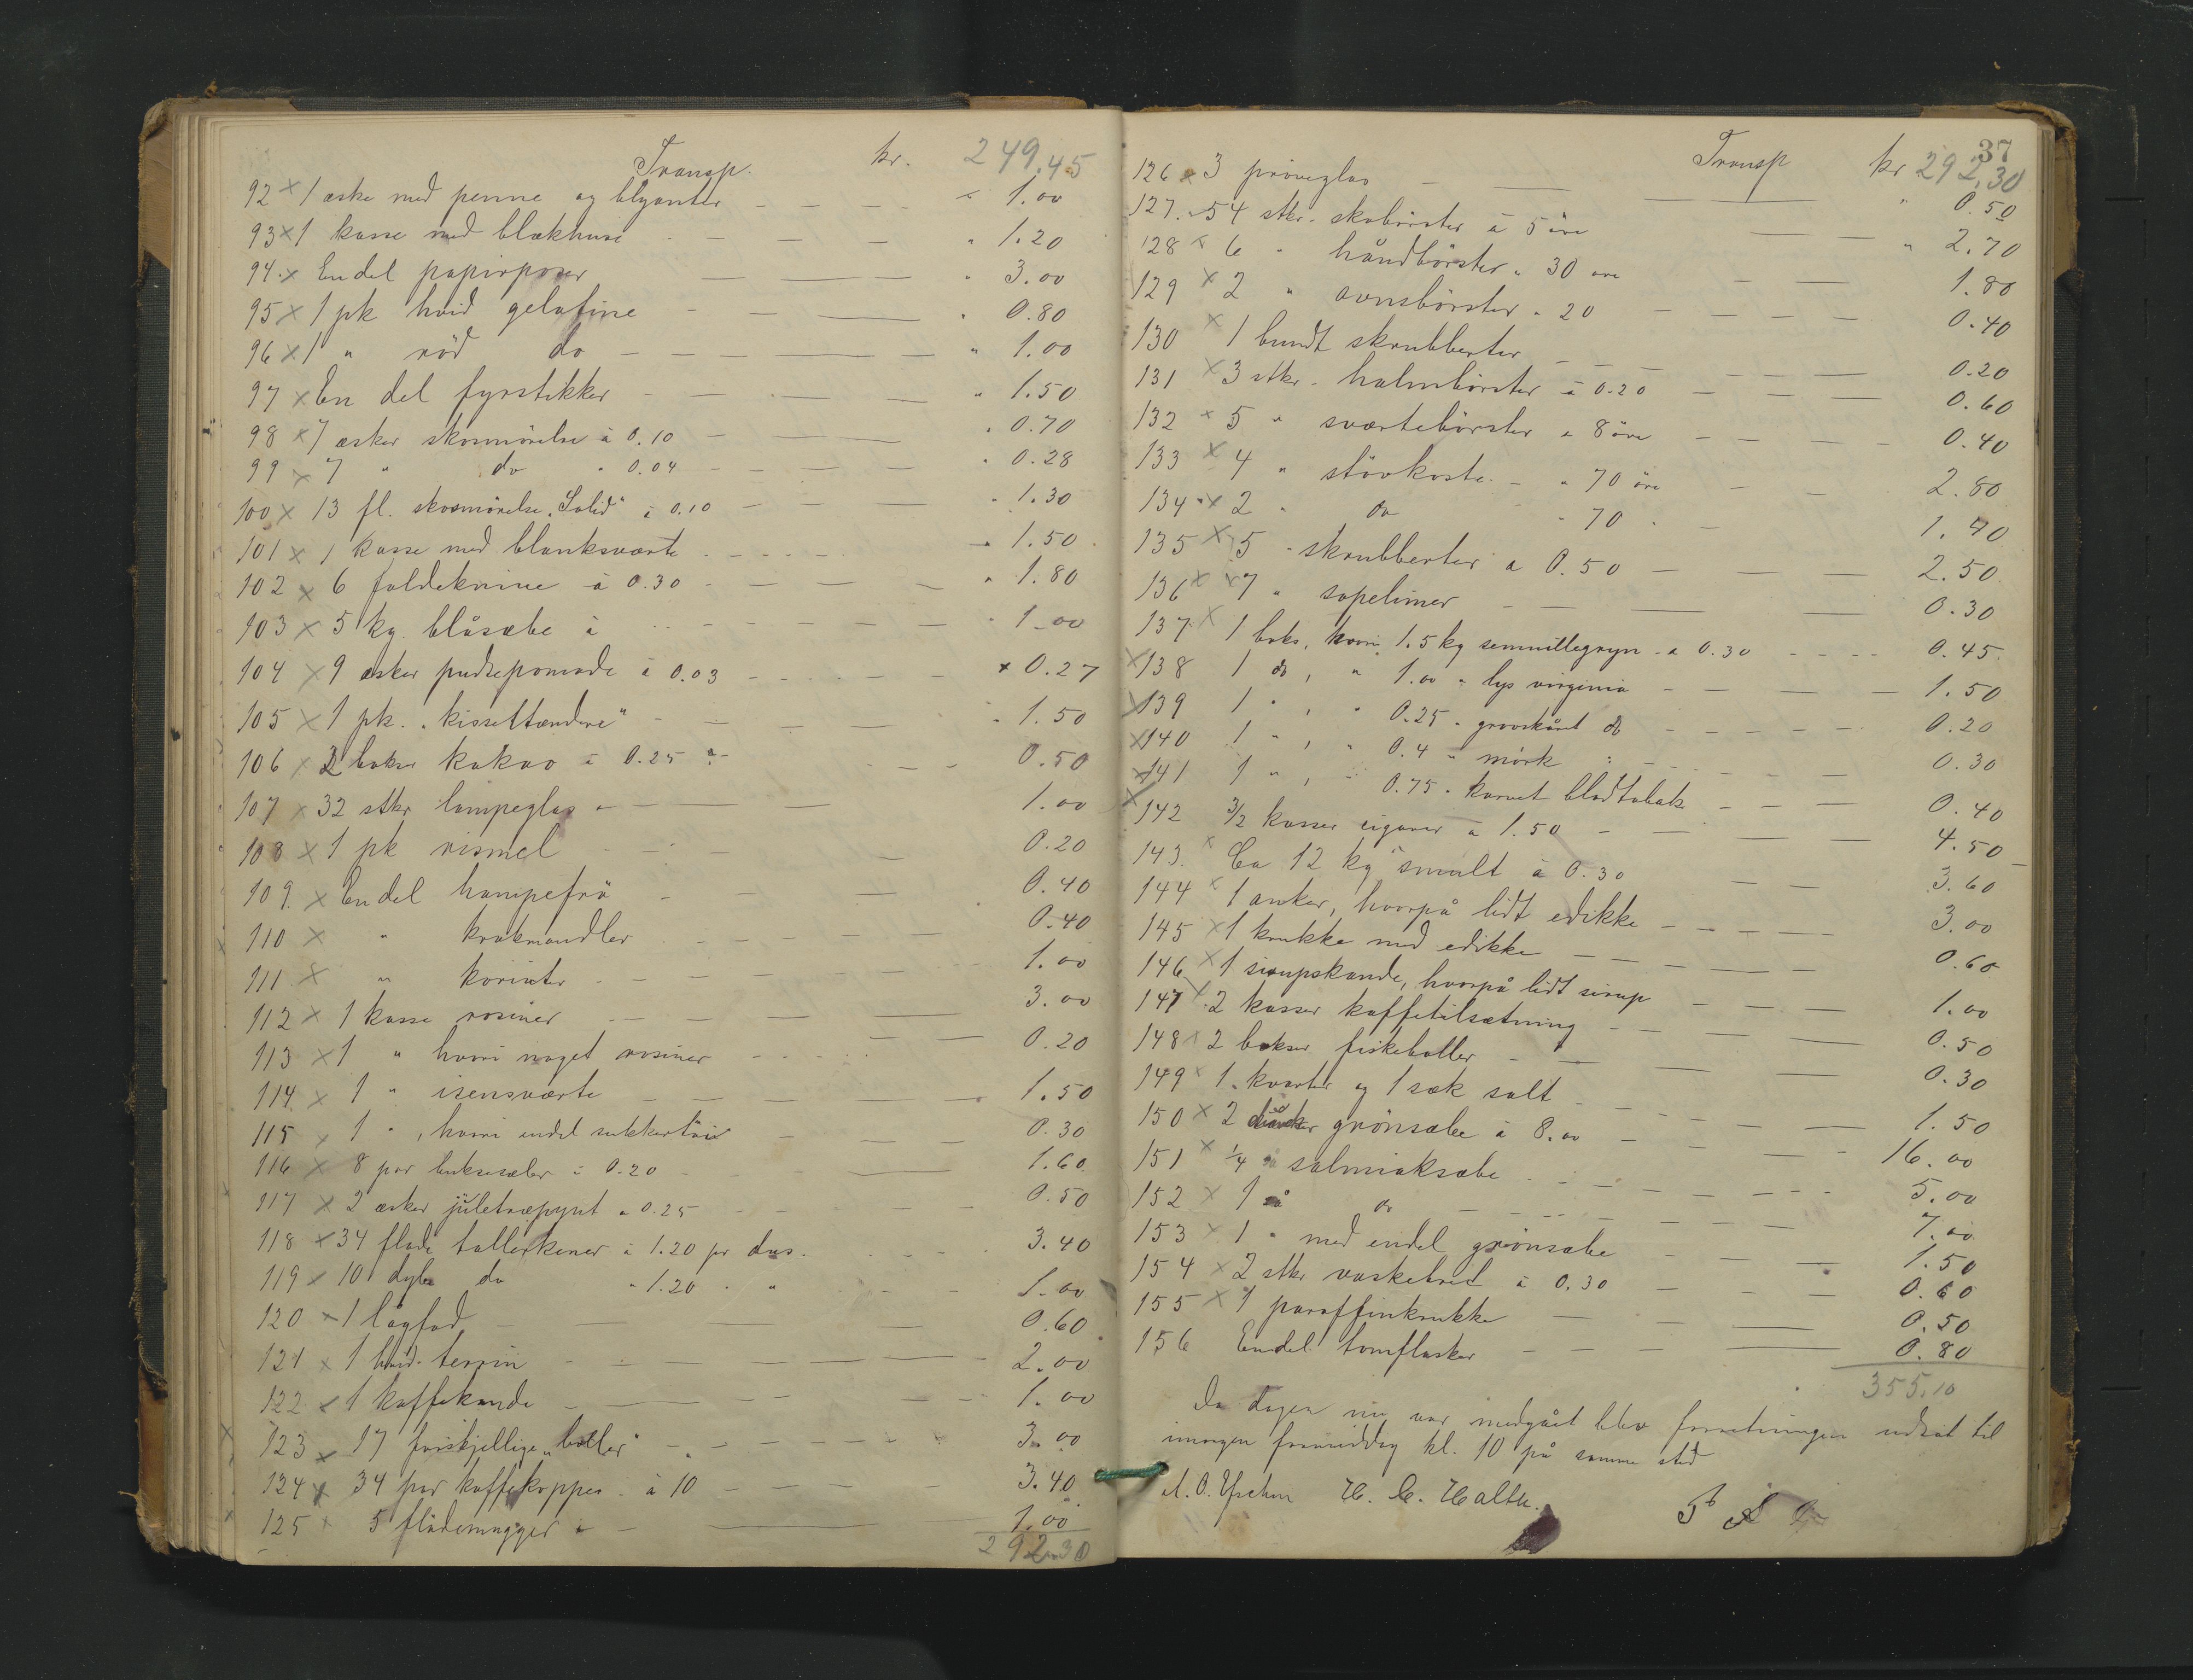 Transp. kr. 249.45
92 x 1 æske med penne og blyanter - - - - " 1.00
93 x 1 kasse med blækhuse - - - - " 1.20
94. x En del papirposer — — " 3.00
95 x 1 pk hvid gelatine - - — — " 0.80
96 x 1 " rød do - - - — — " 1.00
97 x En del fyrstikker - - - - — " 1.50
98 x 7 æsker skosmörelse à 0.10 - - - - " 0.70
99 x 7 " do " 0.04 - - - - " 0.28
100 x 13 fl. skosmörelse „Solid" à 0.10 - - - - " 1.30
101 x 1 kasse med blanksværte - - - - " 1.50
102 x 6 foldeknive à 0.30 - - - - " 1.80
103 x 5 kg. blåsæbe à - - - - - - " 1.00
104 x 9 æsker pudsepomade à 0.03 - - - - - x 0.27
105 x 1 pk. „kissettændere" - - - - " 1.50
106 x 2 bokser kakao à 0.25 - - - - 0.50
107 x 32 stkr lampeglas - - — 1.00
108 x 1 pk rismel - - - — 0.20
109. x En del hampefrö - - - — 0.40
110 x " krakmandler - - - - - - 0.40
111 x " korinter - - - - - - 1.00
112 x 1 kasse rosiner - - - - - 3.00
113 x 1 " hvori noget rosiner - - - - - 0.20
114 x 1 " isensværte - - - - - 1.50
115 x 1 " , hvori endel sukkertöi - - - 0.30
116 x 8 par buksesæler à 0.20 - - - - 1.60
117 x 2 æsker juletræpynt a 0.25 - - - - 0.50
118 x 34 flade tallerkener à 1.20 pr dus. - - - 3.40
119 x 10 dybe do " 1.20 " " - - - 1.00
120 x 1 lågfad - — — 0.60
121 x 1 hvid terrin - - — — 2.00
122 x 1 kaffekande - — - - 1.00
123 x 17 forskjellige „boller" - - - - - 3.00
124 x 34 par kaffekopper à 10 - - - - - 3.40
125 x 5 flödemugger - — — 1.00
292.30
37
Transp kr 292.30
126 x 3 pröveglas - — — " 0.50
127. x 54 stkr. skobörster à 5 öre — — " 2.70
128 x 6 " håndbörster " 30 öre - — 1.80
129 x 2 " ovnsbörster " 20 - - - - 0.40
130 x 1 bundt skrubberter - - - — 0.20
131 x 3 stkr. halmbörster à 0.20 - - — 0.60
132 x 5 " sværtebörster a 8 öre - - - - 0.40
133 x 4 " stövkoste - " 70 öre - - 2.80
134 " x 2 " do " 70 " - 1.40
135 x 5 " skrubberter a 0.50 - - — 2.50
136 x 7 " sopelimer - - — — 0.30
137 x 1 boks, hvori 1.5 kg semmillegryn a 0.30 - - - - 0.45
x 138 1 do , " 1.00 " lys virginia - - - — 1.50
x 139 1 " , " 0.25 " grovskåret do - - - - - 0.20
x 140 1 " , " 0.4 " mörk " - - - - - 0.30
x 141 1 " , " 0.75 " karvet bladtobak - - - 0.40
x 142 3/2 kasser cigarer à 1.50 - - — — 4.50
143. x Ca 12 kg smult à 0.30 - — 3.60
144 x 1 anker, hvorpå lidt edikke - - - - - 3.00
145 x 1 krukke med edikke - - - - - 0.60
146 x 1 sirupskande, hvorpå lidt sirup - - - — 1.00
147 x 2 kasser kaffetilsætning - - - — 0.50
148 x 2 bokser fiskeboller - - - — 0.30
149 x 1 kvarter og 1 sæk salt - - - - - 1.50
150 x 2 grönsæbe à 8.00 - - - - 16.00
151 x 1/4 så salmiaksæbe - - - - - - 5.00
152 x 1 så do - - - - - - 7.00
153 x 1 " med endel grönsæbe - - - - 1.50
154 x 2 stkr vaskebret à 0.30 - - - — 0.60
155 x 1 paraffinkrukke — - - — 0.50
156 Endel tomflasker - - - — 0.80
355.10
Da dagen nu var medgået blev forretningen udsat til
imorgen formiddag kl. 10 på samme sted
H. C. Halth.